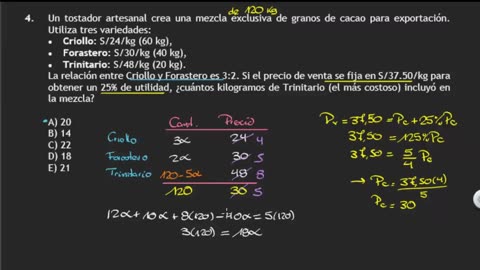 de 120 kg
4. Un tostador artesanal crea una mezcla exclusiva de granos de cacao para exportación.
Utiliza tres variedades:
• Criollo: S/24/kg (60 kg),
• Forastero: S/30/kg (40 kg),
• Trinitario: S/48/kg (20 kg).
La relación entre Criollo y Forastero es 3:2. Si el precio de venta se fija en S/37.50/kg para
obtener un 25% de utilidad, ¿cuántos kilogramos de Trinitario (el más costoso) incluyó en
la mezcla?
*A) 20
B) 14
C) 22
D) 18
E) 21
Cant. Precio
Criollo 3α 24 4
Forastero 2α 30 5
Trinitario 120-5α 48 8
120 30 5
12α + 10α + 8(120) - 40α = 5(120)
3(120) = 18α
Pv = 37,50 = Pc + 25% Pc
37,50 = 125% Pc
37,50 = 5/4 Pc
→ Pc = 37,50(4)/5
Pc = 30